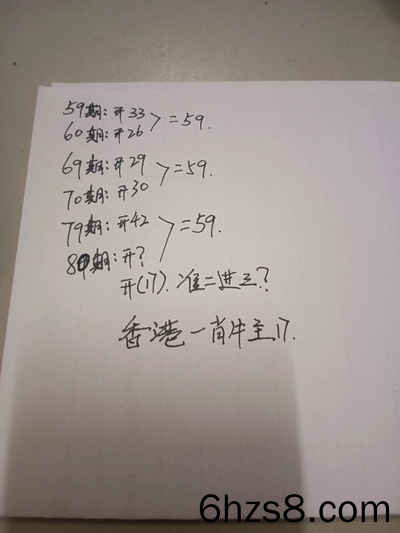 59期:开33
60期:开26 >=59.
69期:开29
70期:开30 >=59.
79期:开42
80期:开? >=59.
开(17).准二进三?
香港一肖牛主17.
6hzs8.com